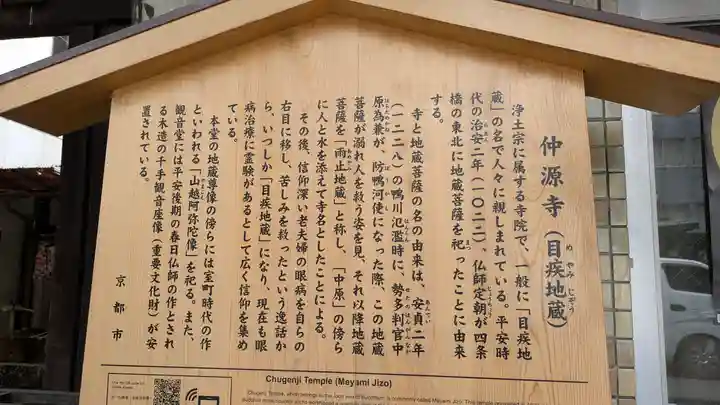 仲源寺（目疾地蔵）
めやみじぞう
浄土宗に属する寺院で、一般に「目疾地
蔵」の名で人々に親しまれている。平安時
代の治安二年（一〇二二）、仏師定朝が四条
橋の東北に地蔵菩薩を祀ったことに由来
する。
寺と地蔵菩薩の名の由来は、安貞二年
（一二二八）の鴨川氾濫時に、勢多判官中
原為兼が、防鴨河使になった際、この地蔵
菩薩が溺れ人を救う姿を見、それ以降地蔵
菩薩を「雨止地蔵」と称し、「中原」の傍ら
に人と水を添えて寺名としたことによる。
その後、信仰深い老夫婦の眼病を自らの
右目に移し、苦しみを救ったという逸話か
ら、いつしか「目疾地蔵」になり、現在も眼
病治療に霊験があるとして広く信仰を集め
ている。
本堂の地蔵尊像の傍らには室町時代の作
といわれる「山越阿弥陀像」を祀る。また、
観音堂には平安後期の春日仏師の作とされ
る木造の千手観音座像（重要文化財）が安
置されている。
京都市
Chugenji Temple (Meyami Jizo)